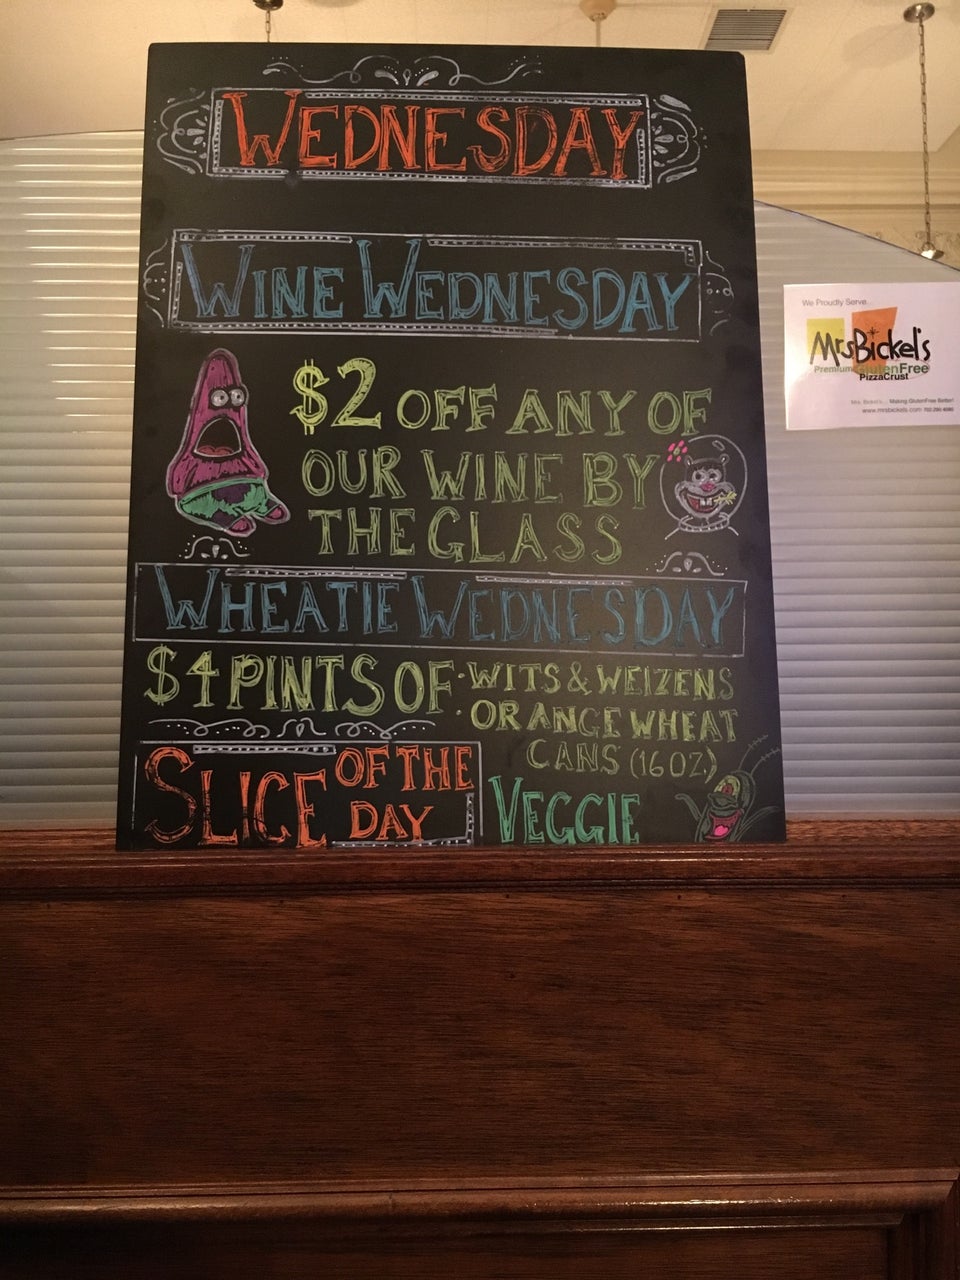 WEDNESDAY
WINE WEDNESDAY
$2 OFF ANY OF
OUR WINE BY
THE GLASS
WHEATIE WEDNESDAY
$4 PINTS OF:
·WITS & WEIZENS
·ORANGE WHEAT
CANS (16OZ.)
SLICE OF THE
DAY
VEGGIE
We Proudly Serve...
MrsBickel's
Premium GlutenFree
PizzaCrust
Mrs. Bickel's... Making GlutenFree Better!
www.mrsbickels.com